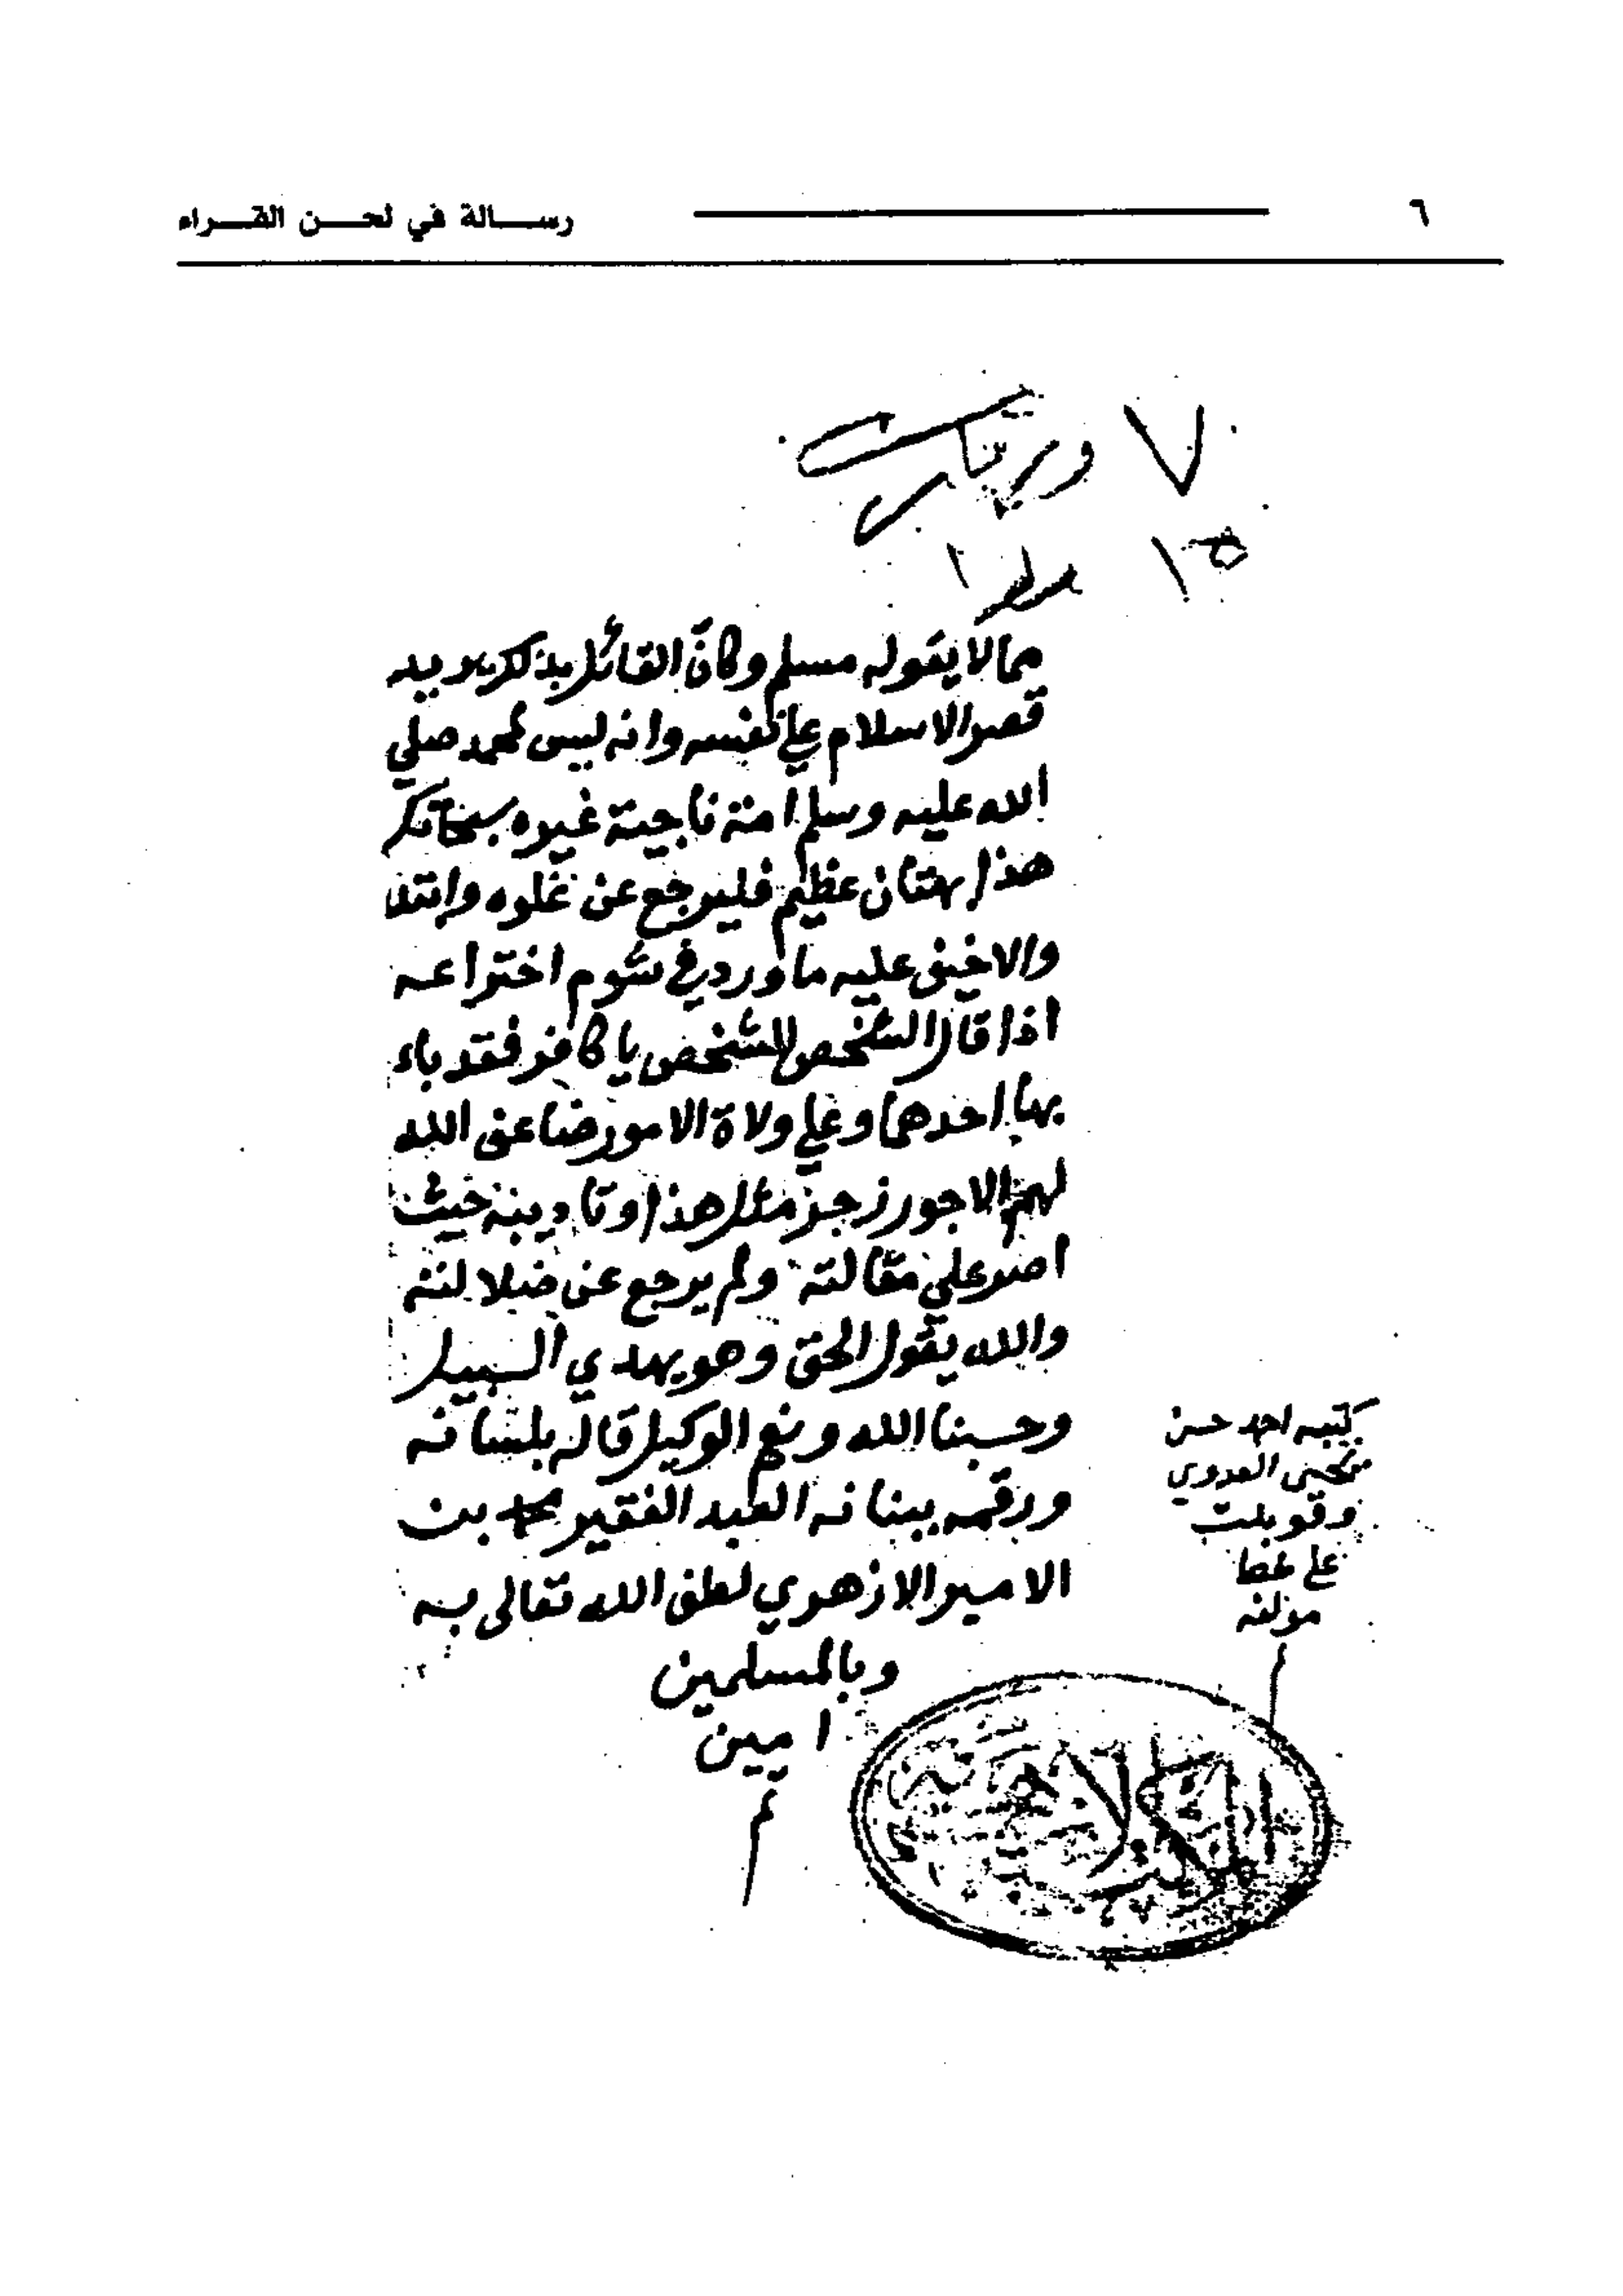 ٦
رسالة في لحن القراء
٧ ورقات
١٥ سطرا
مما لا يقوله مسلم وكان القائل بذلك يريد
قصر الاسلام على نفسه وانه ليس لمحمد صلي
الله عليه وسلم امة ناجية غيره سبحانك
هذا بهتان عظيم فليرجع عن غلوه
والا خيف عليه ما ورد في شوم اختراعه
اذا قال الشخص للشخص يا كافر فقد باء
بها احدهما وعلى ولاة الامور ضاعف الله
لهم الاجور زجر مثل هذا وتاديبه حيث
اصر علي مقالته ولم يرجع عن ضلالته
والله يقول الحق وهو يهدي السبيل
وحسبنا الله ونعم الوكيل قاله بلسانه
ورقمه ببنانه العبد الفقير محمد بن
الامير الازهري لطف الله تعالى به
وبالمسلمين
امين
كتبه احمد حسن
العدوي
وقوبلت
على خط
مولفه